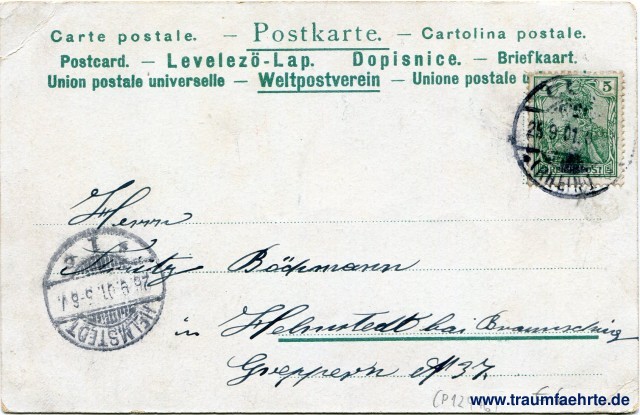 Carte postale. — Postkarte. — Cartolina postale.
Postcard. — Levelező-Lap. Dopisnice. — Briefkaart.
Union postale universelle — Weltpostverein — Unione postale u
5
25.9.01.
(RHEIN)
Herrn
Fritz Böckmann
in Helmstedt bei Braunschweig
Greppern № 37.
26.9.01.5-6V.
HELMSTEDT.
www.traumfaehrte.de